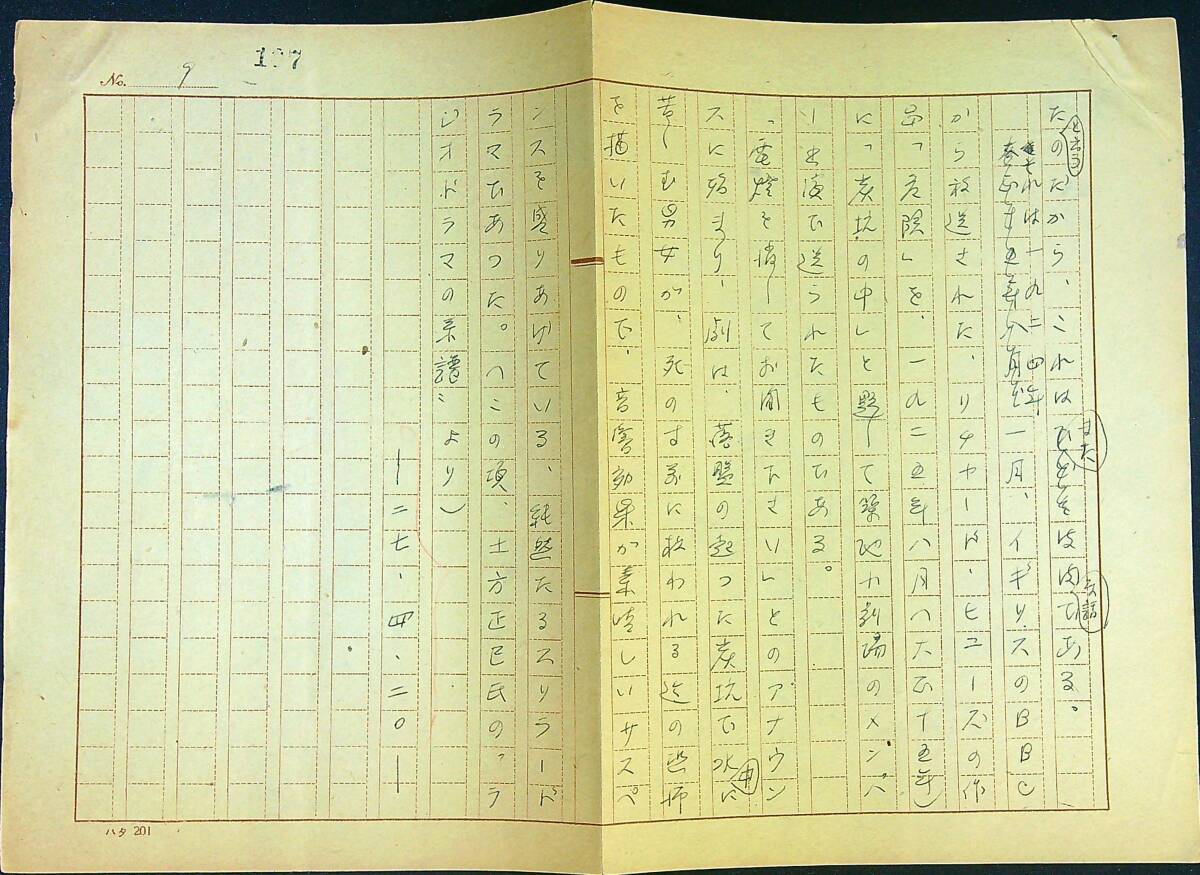 No. 9
107
たのだから、これはひどを皮肉である。
と云う
また
な話
それは一九二四年一月、イギリスのBBC
から放送された、リチャード・ヒューズの作
品「危険」を、一九二五年八月(大正十五年)
に「炭坑の中」と題して築地小劇場のメンバ
ー出演で送られたものである。
「電燈を消してお聞き下さい」とのアナウン
スに始まり、劇は、落盤の起った炭坑で水に
中
苦しむ男女が、死の寸前に救われる迄の恐怖
を描いたもので、音響効果が素晴しいサスペ
ンスを盛りあげている、純然たるスリラード
ラマであつた。(この項、土方正巳氏の〝ラ
ジオドラマの系譜〟より)
―二七・四・二〇―
ハタ 201